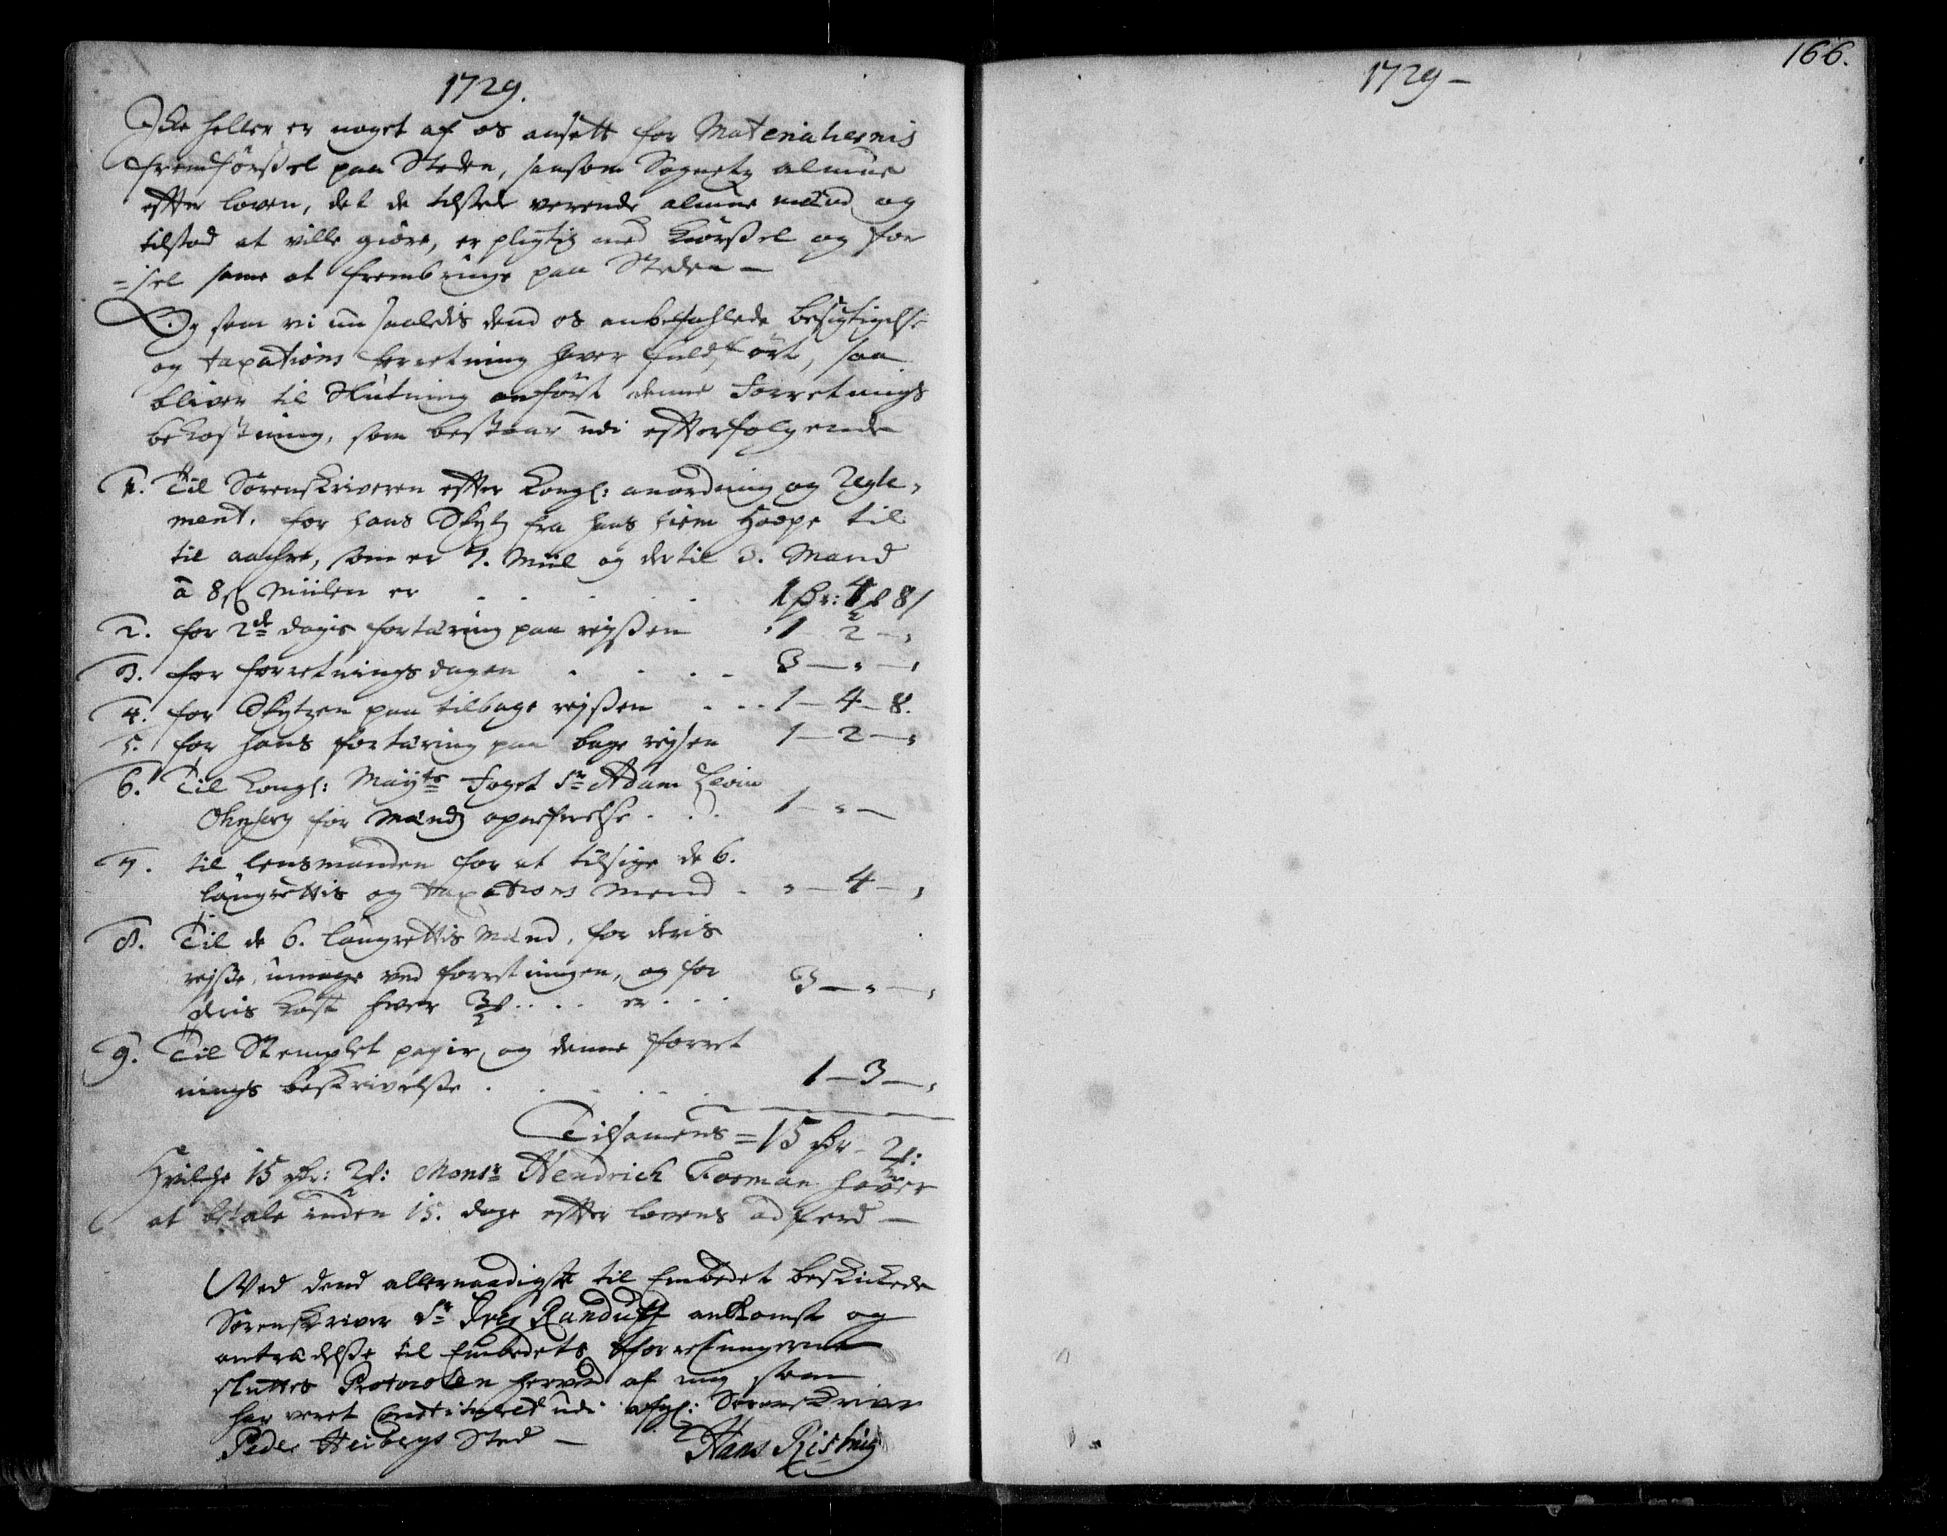 1729.
Icke heller er noget af os ansatt for Materialiernis
fremførßel paa Steden, saasom Sognetz almue
effter loven, det de tilstede verende almue mænd og
tilstod at ville giøre, er pligtig med Kiørßel og før
=sel same at frembringe paa Steden —
Og som vi nu saaledis dend os anbefahlede besigtigelse
og taxations forretning haver fuldført, saa
bliver til Slutning anført denne Forretnings
bekostning, som bestaar udi effterfølgende
1. Til Sorenskriveren effter Kongl: anordning og Regle-
ment, for hans Skytz fra hans hiem til
til som er 7. Miil og dertil 3. Mand
a 8 s Miilen er . . . . 1 Rdr: 4 8 s
2. for 2de dagis fortæring paa reyßen 1 - 2 - "
3. for forretnings dagen . . . . 3 — " — "
4. for Skytzen paa tilbage reyßen . . . 1 — 4 — 8.
5. for hans fortæring paa bage reysen 1 — 2 — "
6. Til Kongl: Mayts Foget Sr Adam Levin
for Mændz opnefnelse . . . 1 — " —
7. til lensmanden for at tilsige de 6.
laugrettis og taxations Mend . " — 4 — "
8. Til de 6. laugrettis Mænd, for deris
reyße, umage ved forretningen, og for
deris kost hver 3 . . . . er . . . 3 — " — "
9. Til Stemplet papir og denne forret
nings beskrivelße . . . . . 1 — 3 — "
Tilsamens = 15 Rdr - 2
Hvilche 15 Rdr: 2 Monsr Hendrich Forman haver
at betale inden 15. dage effter lovens adferd —
Ved dend allernaadigst til Embedet beskickede
Sorenskriver Sr Iver Randulff ankomst og
antrædelße til Embedets forretningerne
sluttes Protocolen herved af mig som
har veret Constitueret udi afgl: Sorenskriver
Peder Heibergs Sted —
Hans Rishuig
1729 —
166.